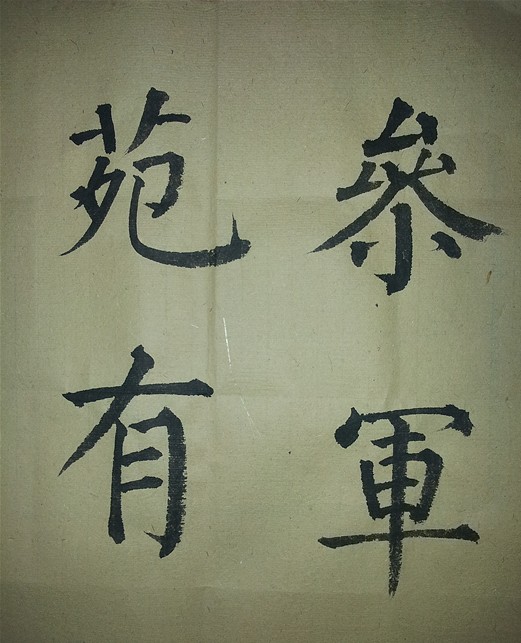 叅軍
苑有